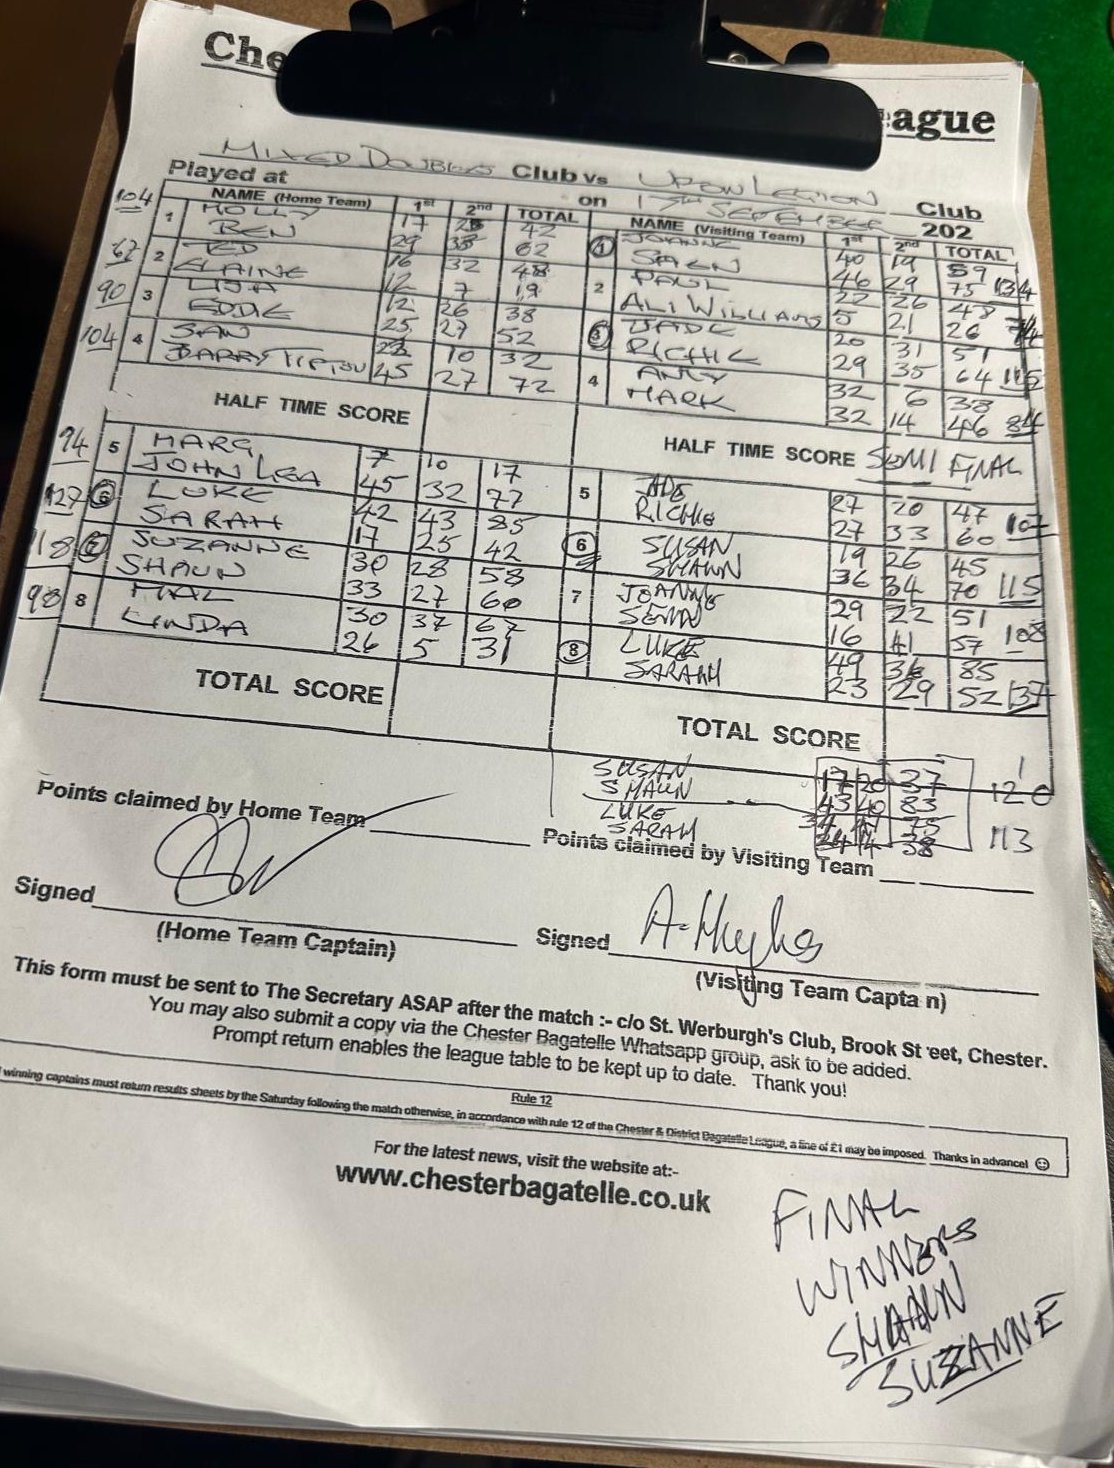 Che ague
MIXED DOUBLES Club vs UPTON LEGION Club
Played at on 17TH SEPTEMBER 202
NAME (Home Team) 1st 2nd TOTAL NAME (Visiting Team) 1st 2nd TOTAL
104 1 HOLLY 17 25 42 1 JOANNE 40 19 59
BEN 29 33 62 SHAUN 46 29 75 134
67 2 TED 16 32 48 2 PAUL 22 26 48
ELAINE 12 7 19 ALI WILLIAMS 5 21 26 74
90 3 LISA 12 26 38 3 JADE 20 31 51
EDDIE 25 27 52 RICHIE 29 35 64 115
104 4 SAN 22 10 32 4 ANDY 32 6 38
BARRY TIPTON 45 27 72 MARK 32 14 46 84
HALF TIME SCORE HALF TIME SCORE SEMI FINAL
94 5 MARG 7 10 17 5 ADE 27 20 47
JOHN LEA 45 32 77 RICHIE 27 33 60 107
127 6 LUKE 42 43 85 6 SUSAN 19 26 45
SARAH 17 25 42 SHAWN 36 34 70 115
118 7 SUZANNE 30 28 58 7 JOANNE 29 22 51
SHAUN 33 27 60 SEAN 16 41 57 108
98 8 MAL 30 37 67 8 LUKE 49 36 85
LINDA 26 5 31 SARAH 23 29 52 137
TOTAL SCORE TOTAL SCORE
SUSAN 17 20 37
SHAWN 43 40 83 120
LUKE 34 41 75
SARAH 24 14 38 113
Points claimed by Home Team Points claimed by Visiting Team
Signed Signed A-Hughes
(Home Team Captain) (Visiting Team Capta n)
This form must be sent to The Secretary ASAP after the match :- c/o St. Werburgh's Club, Brook St eet, Chester.
You may also submit a copy via the Chester Bagatelle Whatsapp group, ask to be added.
Prompt return enables the league table to be kept up to date. Thank you!
Rule 12
winning captains must return results sheets by the Saturday following the match otherwise, in accordance with rule 12 of the Chester & District Bagatelle League, a fine of £1 may be imposed. Thanks in advance! ☺
For the latest news, visit the website at:-
www.chesterbagatelle.co.uk
FINAL
WINNERS
SHAUN
SUZANNE